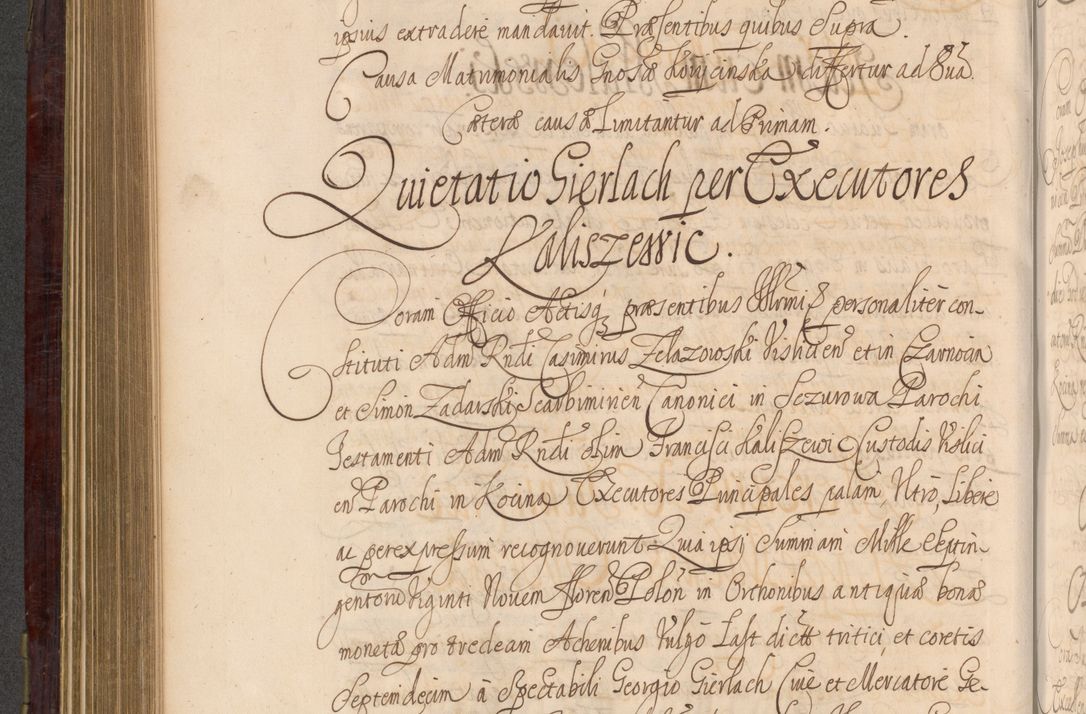 ipsius extradere mandavit. Præsentibus quibus Supra.
Causa Matrimonialis Gnosæ Konicinska differtur ad 8va.
Cæteræ causæ Limitantur ad Primam.
Quietatio Gierlach per Executores
Kaliszewic.
Coram Officio Actisq præsentibus personaliter con-
stituti Adm Rndi Casimirus Zelazowski Vislicien et in Czarnocin
et Simon Zadarski Scarbimirien Canonici in Sczurowa Parochi
Testamenti Adm Rndi olim Francisci Kaliszewic Custodis Vislici
en Parochi in Kocina Executores Principales palam, Ultro, Libere
ac per expressum recognoverunt Quia ipsi Summam Mille Septin-
gentoru Viginti Novem floren Polon in Orthonibus antiquæ bonæ
monetæ pro tredecim Achenibus Vulgo Last dictt tritici et coretis
Septemdecim à Spectabili Georgio Gierlach Cive et Mercatore Ge-